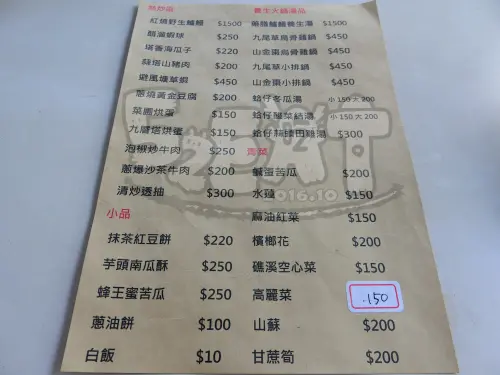 熱炒區
紅燒野生鱸鰻 $1500
胡滿蝦球 $250
塔香海瓜子 $220
蒜塩山豬肉 $200
避風塘草蝦 $450
蔥燒黃金豆腐 $200
菜圃烘蛋 $150
九層塔烘蛋 $150
泡椒炒牛肉 $250
蔥爆沙茶牛肉 $200
清炒透抽 $300
小品
抹茶紅豆餅 $220
芋頭南瓜酥 $250
蜂王蜜苦瓜 $250
蔥油餅 $100
白飯 $10
養生火鍋湯品
$1500
九尾草烏骨雞鍋 $450
山金棗烏骨雞鍋 $450
九尾草小排鍋 $450
山金棗小排鍋 $450
蛤仔冬瓜湯 小150大200
蛤仔酸菜結湯 小150大200
蛤仔蒜頭田雞湯 $300
青菜
鹹蛋苦瓜 $200
水蓮 $150
麻油紅菜 $150
檳榔花 $200
礁溪空心菜 $150
高麗菜 .150
山蘇 $200
甘蔗筍 $200
2016.10